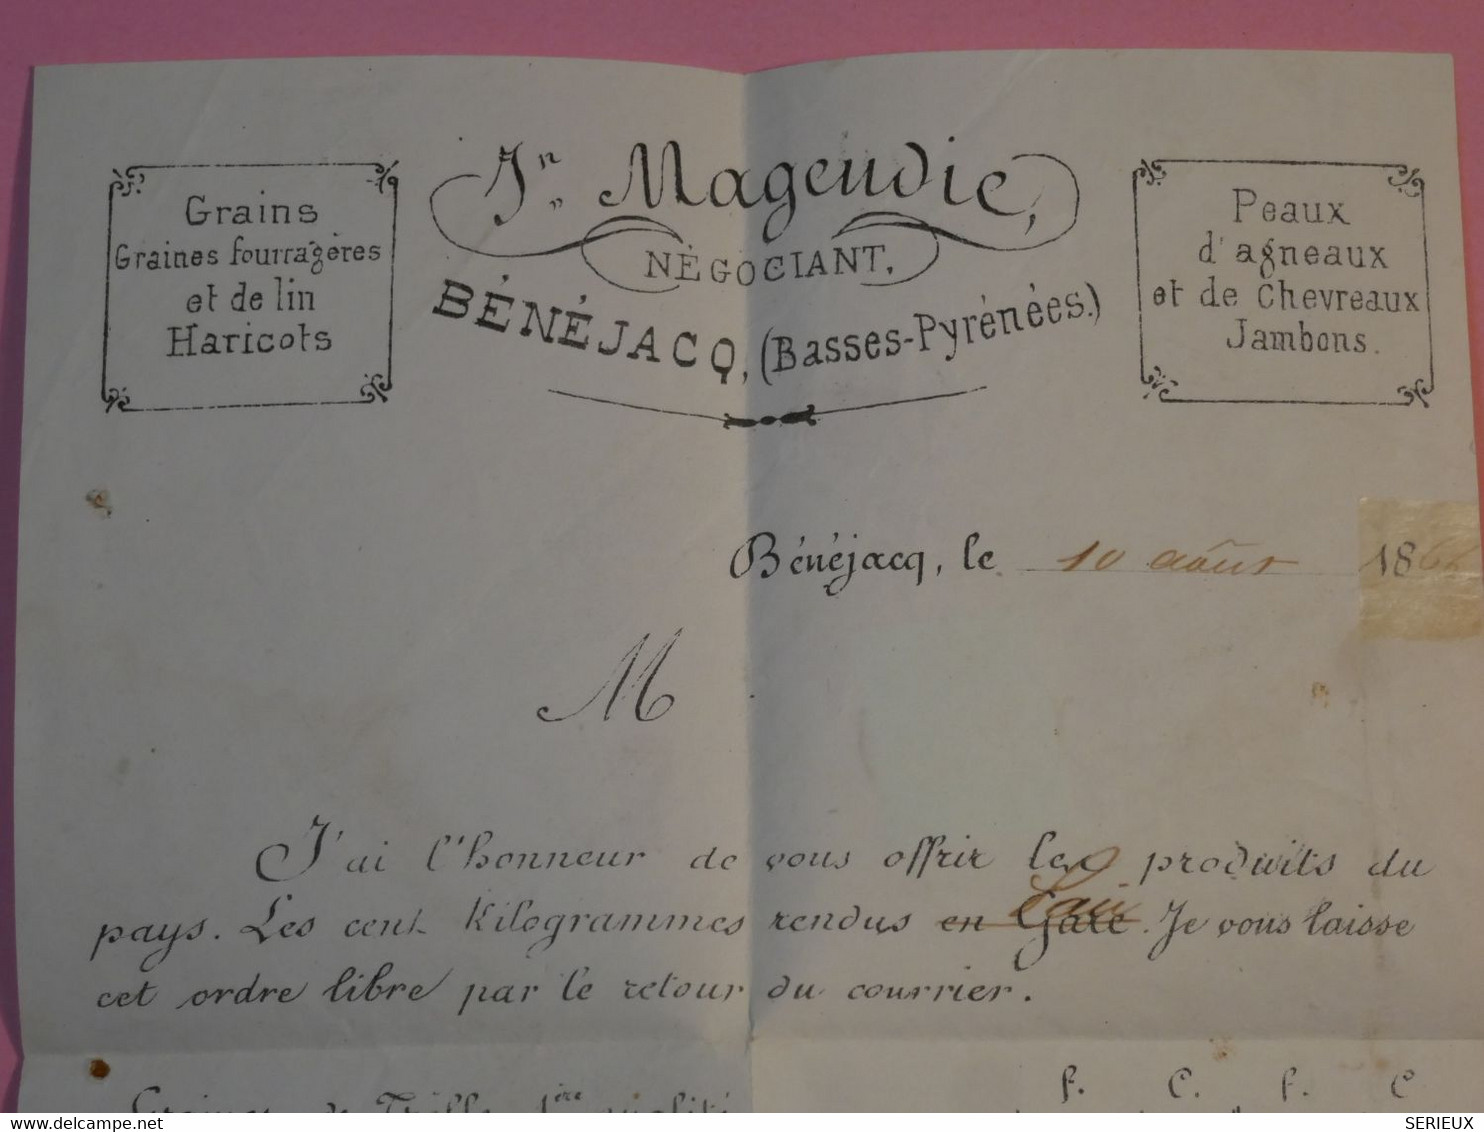 Jn Magendie,
NÉGOCIANT,
BÉNÉJACQ, (Basses-Pyrénées.)
Grains
Graines fourragères
et de lin
Haricots
Peaux
d'agneaux
et de Chevreaux
Jambons.
Bénéjacq, le 10 août 186
M
J'ai l'honneur de vous offrir les produits du
pays. Les cent Kilogrammes rendus en Gare. Je vous laisse
cet ordre libre par le retour du courrier.
f. C. f. C
Graines de Trèfle 1ère qualité
Delcampe.net
SERIEUX